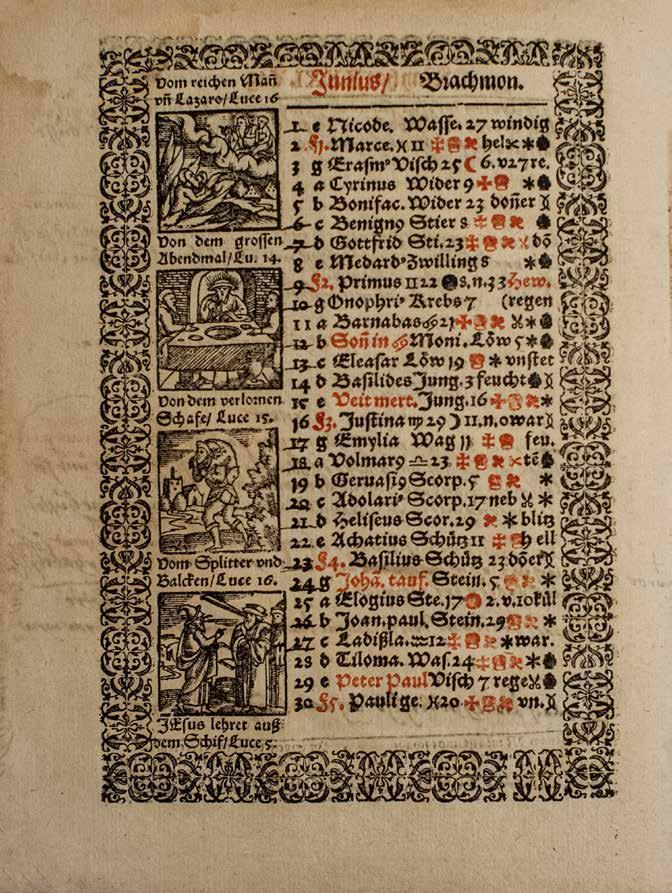 Vom reichen Mañ
vñ Lazaro/Luce 16
Von dem grossen
Abendmal/Lu. 14.
Von dem verlornen
Schafe/ Luce 15.
Vom Splitter vnd
Balcken/Luce 16.
JEsus lehret auß
dem Schif/Luce 5.
Junius/ Brachmon.
1 e Nicode. Wasse. 27 windig
2 Marce. ♓ 11 hel
3 g Erasm' Visch 25 ☾ 6. v 27 re.
4 a Cyrinus Wider 9
5 b Bonifac. Wider 23 doñer
6 c Benign9 Stier 8
7 d Gottfrid Sti. 23 dõ
8 e Medard' Zwilling 8
9 F2. Primus 11 22 s. n. 33 Hew.
10 g Onophri' Krebs 7 (regen
11 a Barnabas ♋ 21
12 b Soñ in ♋ Moni. Löw 5
13 c Eleasar Löw 19 vnstet
14 d Basilides Jung. 3 feucht
15 e Veit mert. Jung. 16
16 F3. Justina ♍ 29 ☽ 11. n. 0 war
17 g Emylia Wag 11 feu.
18 a Volmar9 ♎ 23 tẽ
19 b Gervasi9 Scorp. 5
20 c Adolari' Scorp. 17 neb
21 d Heliseus Scor. 29 blitz
22 e Achatius Schütz 11 h ell
23 F4. Basilius Schütz 23 dõer
24 g Johã. tauf. Stein. 5
25 a Elogius Ste. 17 2. v. 10 kül
26 b Joan. paul. Stein. 29
27 c Ladißla. ♒ 12 war.
28 d Tiloma. Was. 24
29 e Peter Paul Visch 7 rege
30 F5. Pauli ge. ♓ 20 vn.